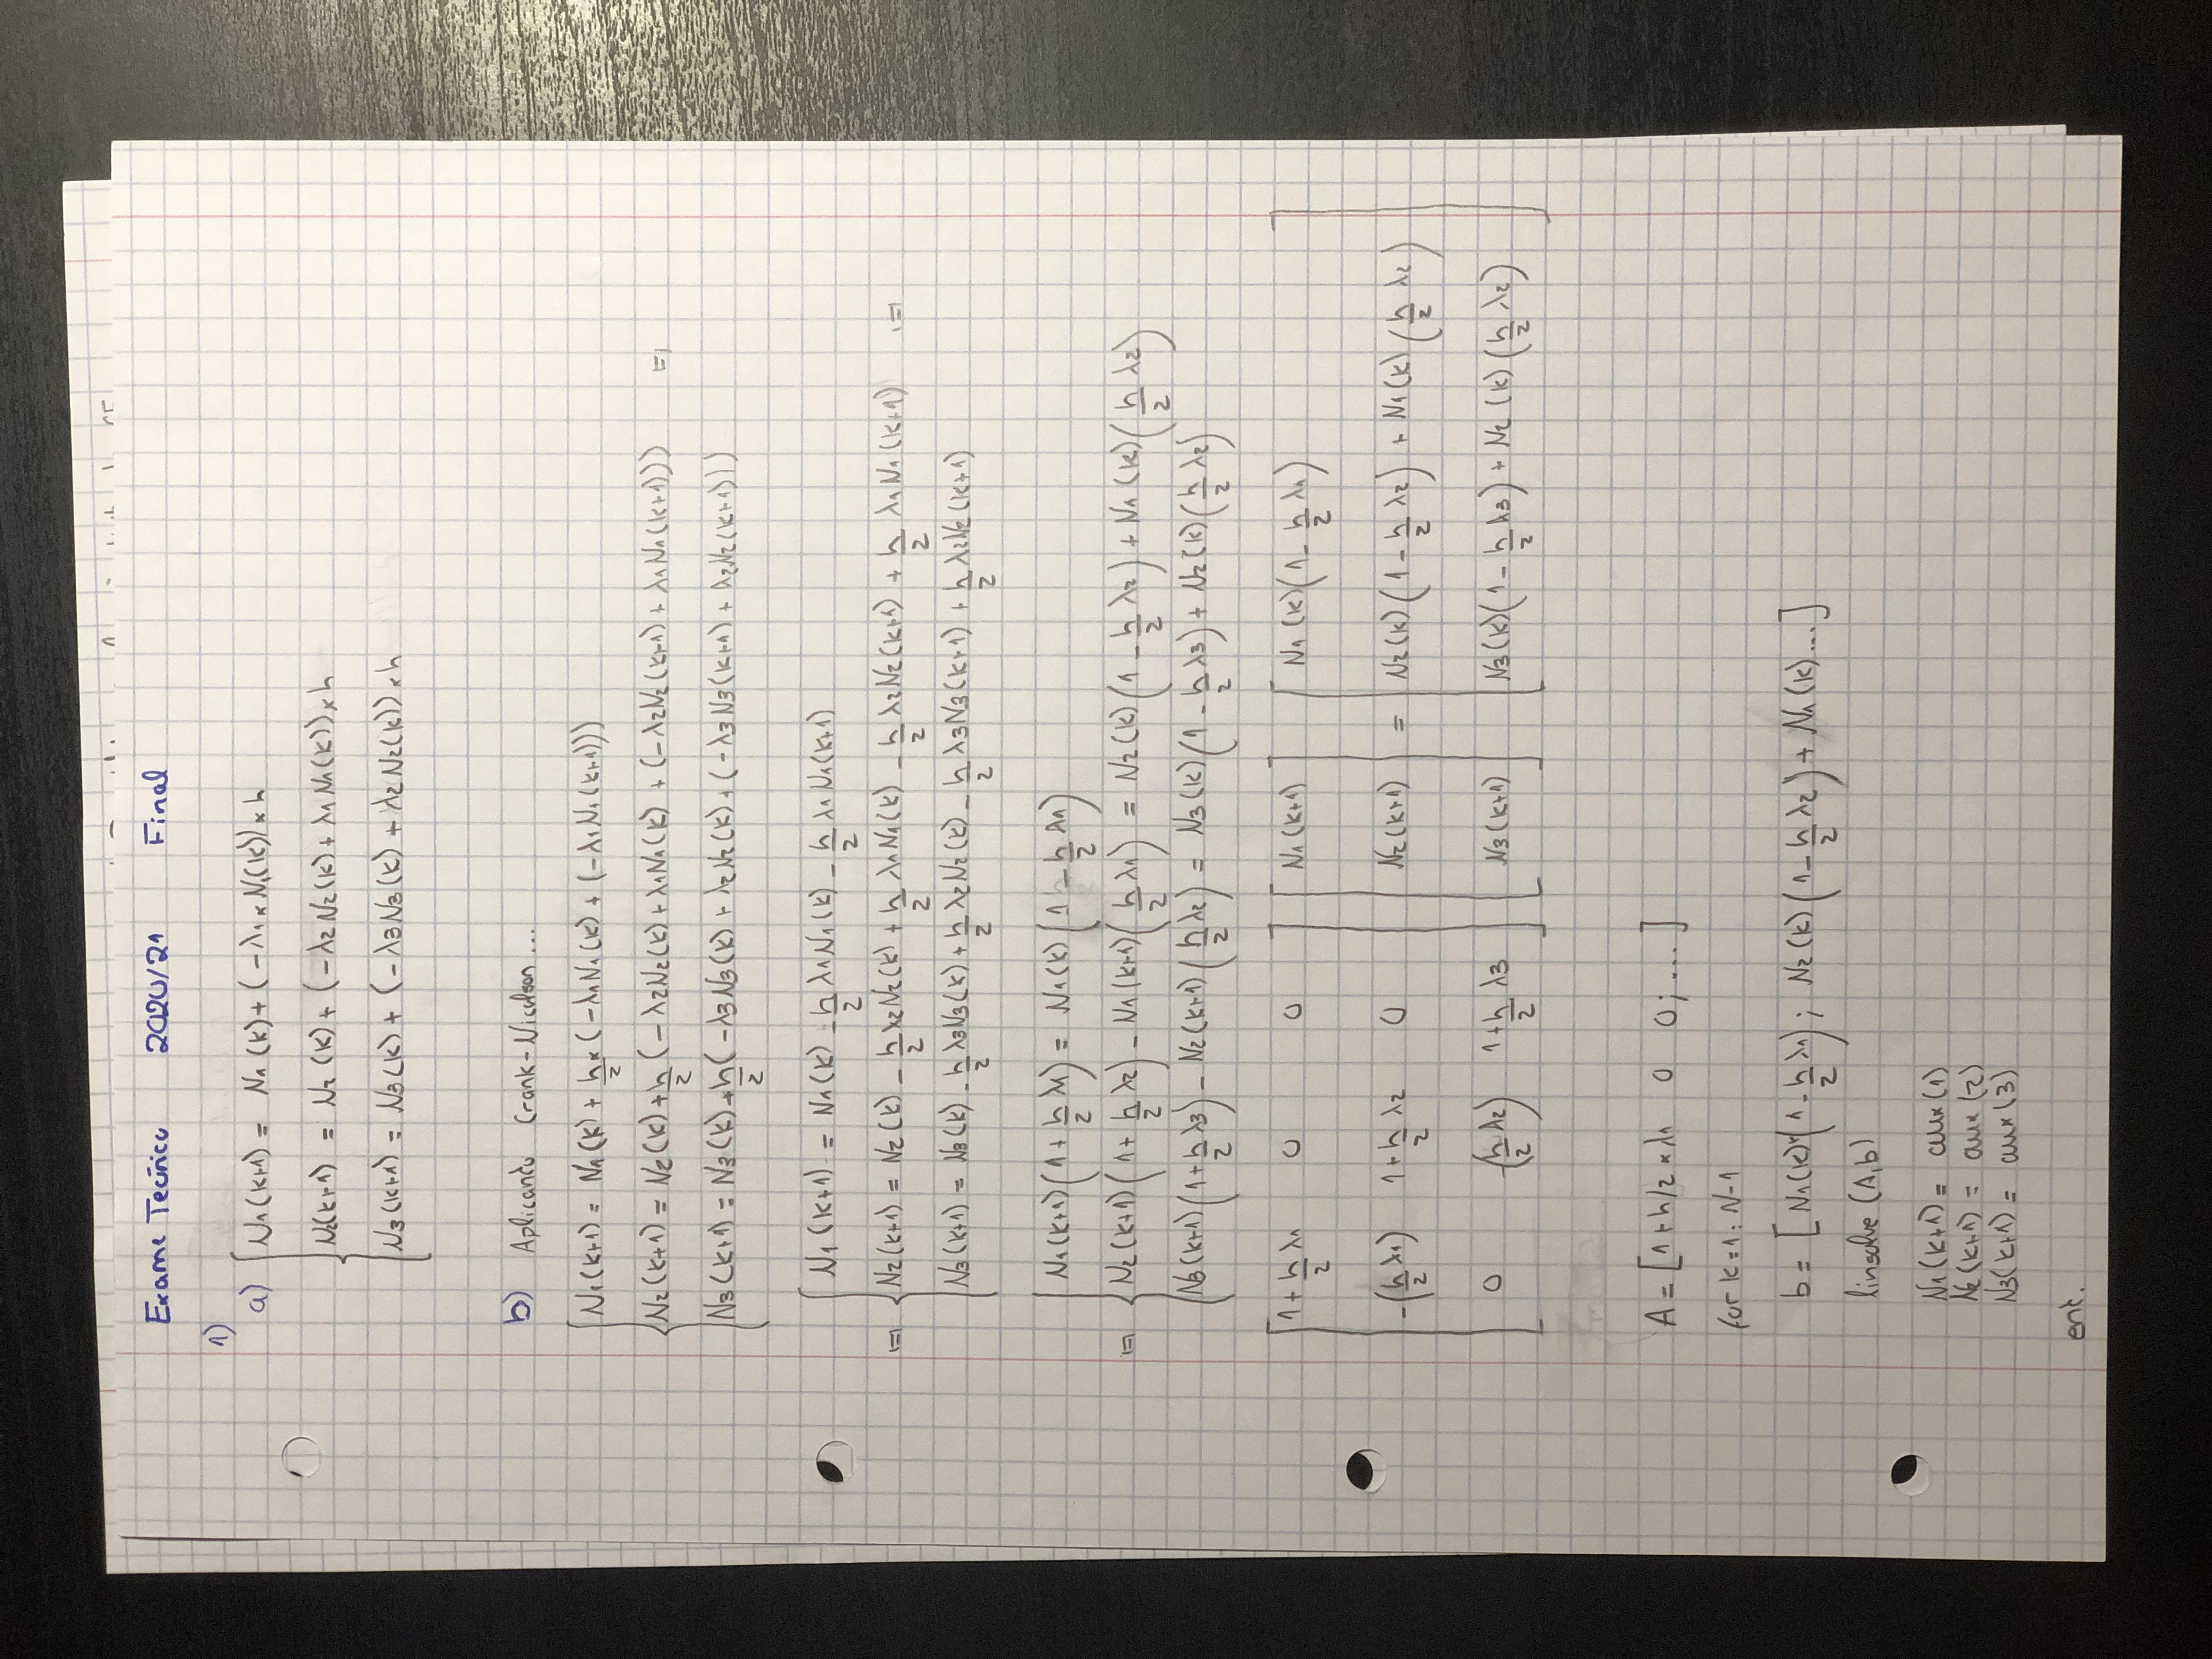 Exame Teórico 2020/21 Final
1)
a) N1(k+1) = N1(k) + (-λ1 × N1(k)) × h
N2(k+1) = N2(k) + (-λ2 N2(k) + λ1 N1(k)) × h
N3(k+1) = N3(k) + (-λ3 N3(k) + λ2 N2(k)) × h
b) Aplicando Crank-Nicolson ...
N1(k+1) = N1(k) + h/2 × (-λ1 N1(k) + (-λ1 N1(k+1)))
N2(k+1) = N2(k) + h/2 (-λ2 N2(k) + λ1 N1(k) + (-λ2 N2(k+1) + λ1 N1(k+1))) (=)
N3(k+1) = N3(k) + h/2 (-λ3 N3(k) + λ2 N2(k) + (-λ3 N3(k+1) + λ2 N2(k+1)))
N1(k+1) = N1(k) - h/2 λ1 N1(k) - h/2 λ1 N1(k+1)
(=) N2(k+1) = N2(k) - h/2 λ2 N2(k) + h/2 λ1 N1(k) - h/2 λ2 N2(k+1) + h/2 λ1 N1(k+1) (=)
N3(k+1) = N3(k) - h/2 λ3 N3(k) + h/2 λ2 N2(k) - h/2 λ3 N3(k+1) + h/2 λ2 N2(k+1)
N1(k+1) (1 + h/2 λ1) = N1(k) (1 - h/2 λ1)
(=) N2(k+1) (1 + h/2 λ2) - N1(k+1) (h/2 λ1) = N2(k) (1 - h/2 λ2) + N1(k) (h/2 λ2)
N3(k+1) (1 + h/2 λ3) - N2(k+1) (h/2 λ2) = N3(k) (1 - h/2 λ3) + N2(k) (h/2 λ2)
[1 + h/2 λ1 0 0] [N1(k+1)] [N1(k) (1 - h/2 λ1)]
[-(h/2 λ1) 1 + h/2 λ2 0] [N2(k+1)] = [N2(k) (1 - h/2 λ2) + N1(k) (h/2 λ2)]
[0 -(h/2 λ2) 1 + h/2 λ3] [N3(k+1)] [N3(k) (1 - h/2 λ3) + N2(k) (h/2 λ2)]
A = [1 + h/2 × λ1 0 0; ...]
for k = 1 : N-1
b = [N1(k) * (1 - h/2 λ1); N2(k) (1 - h/2 λ2) + N1(k) ...]
linsolve (A,b)
N1(k+1) = aux(1)
N2(k+1) = aux(2)
N3(k+1) = aux(3)
end.